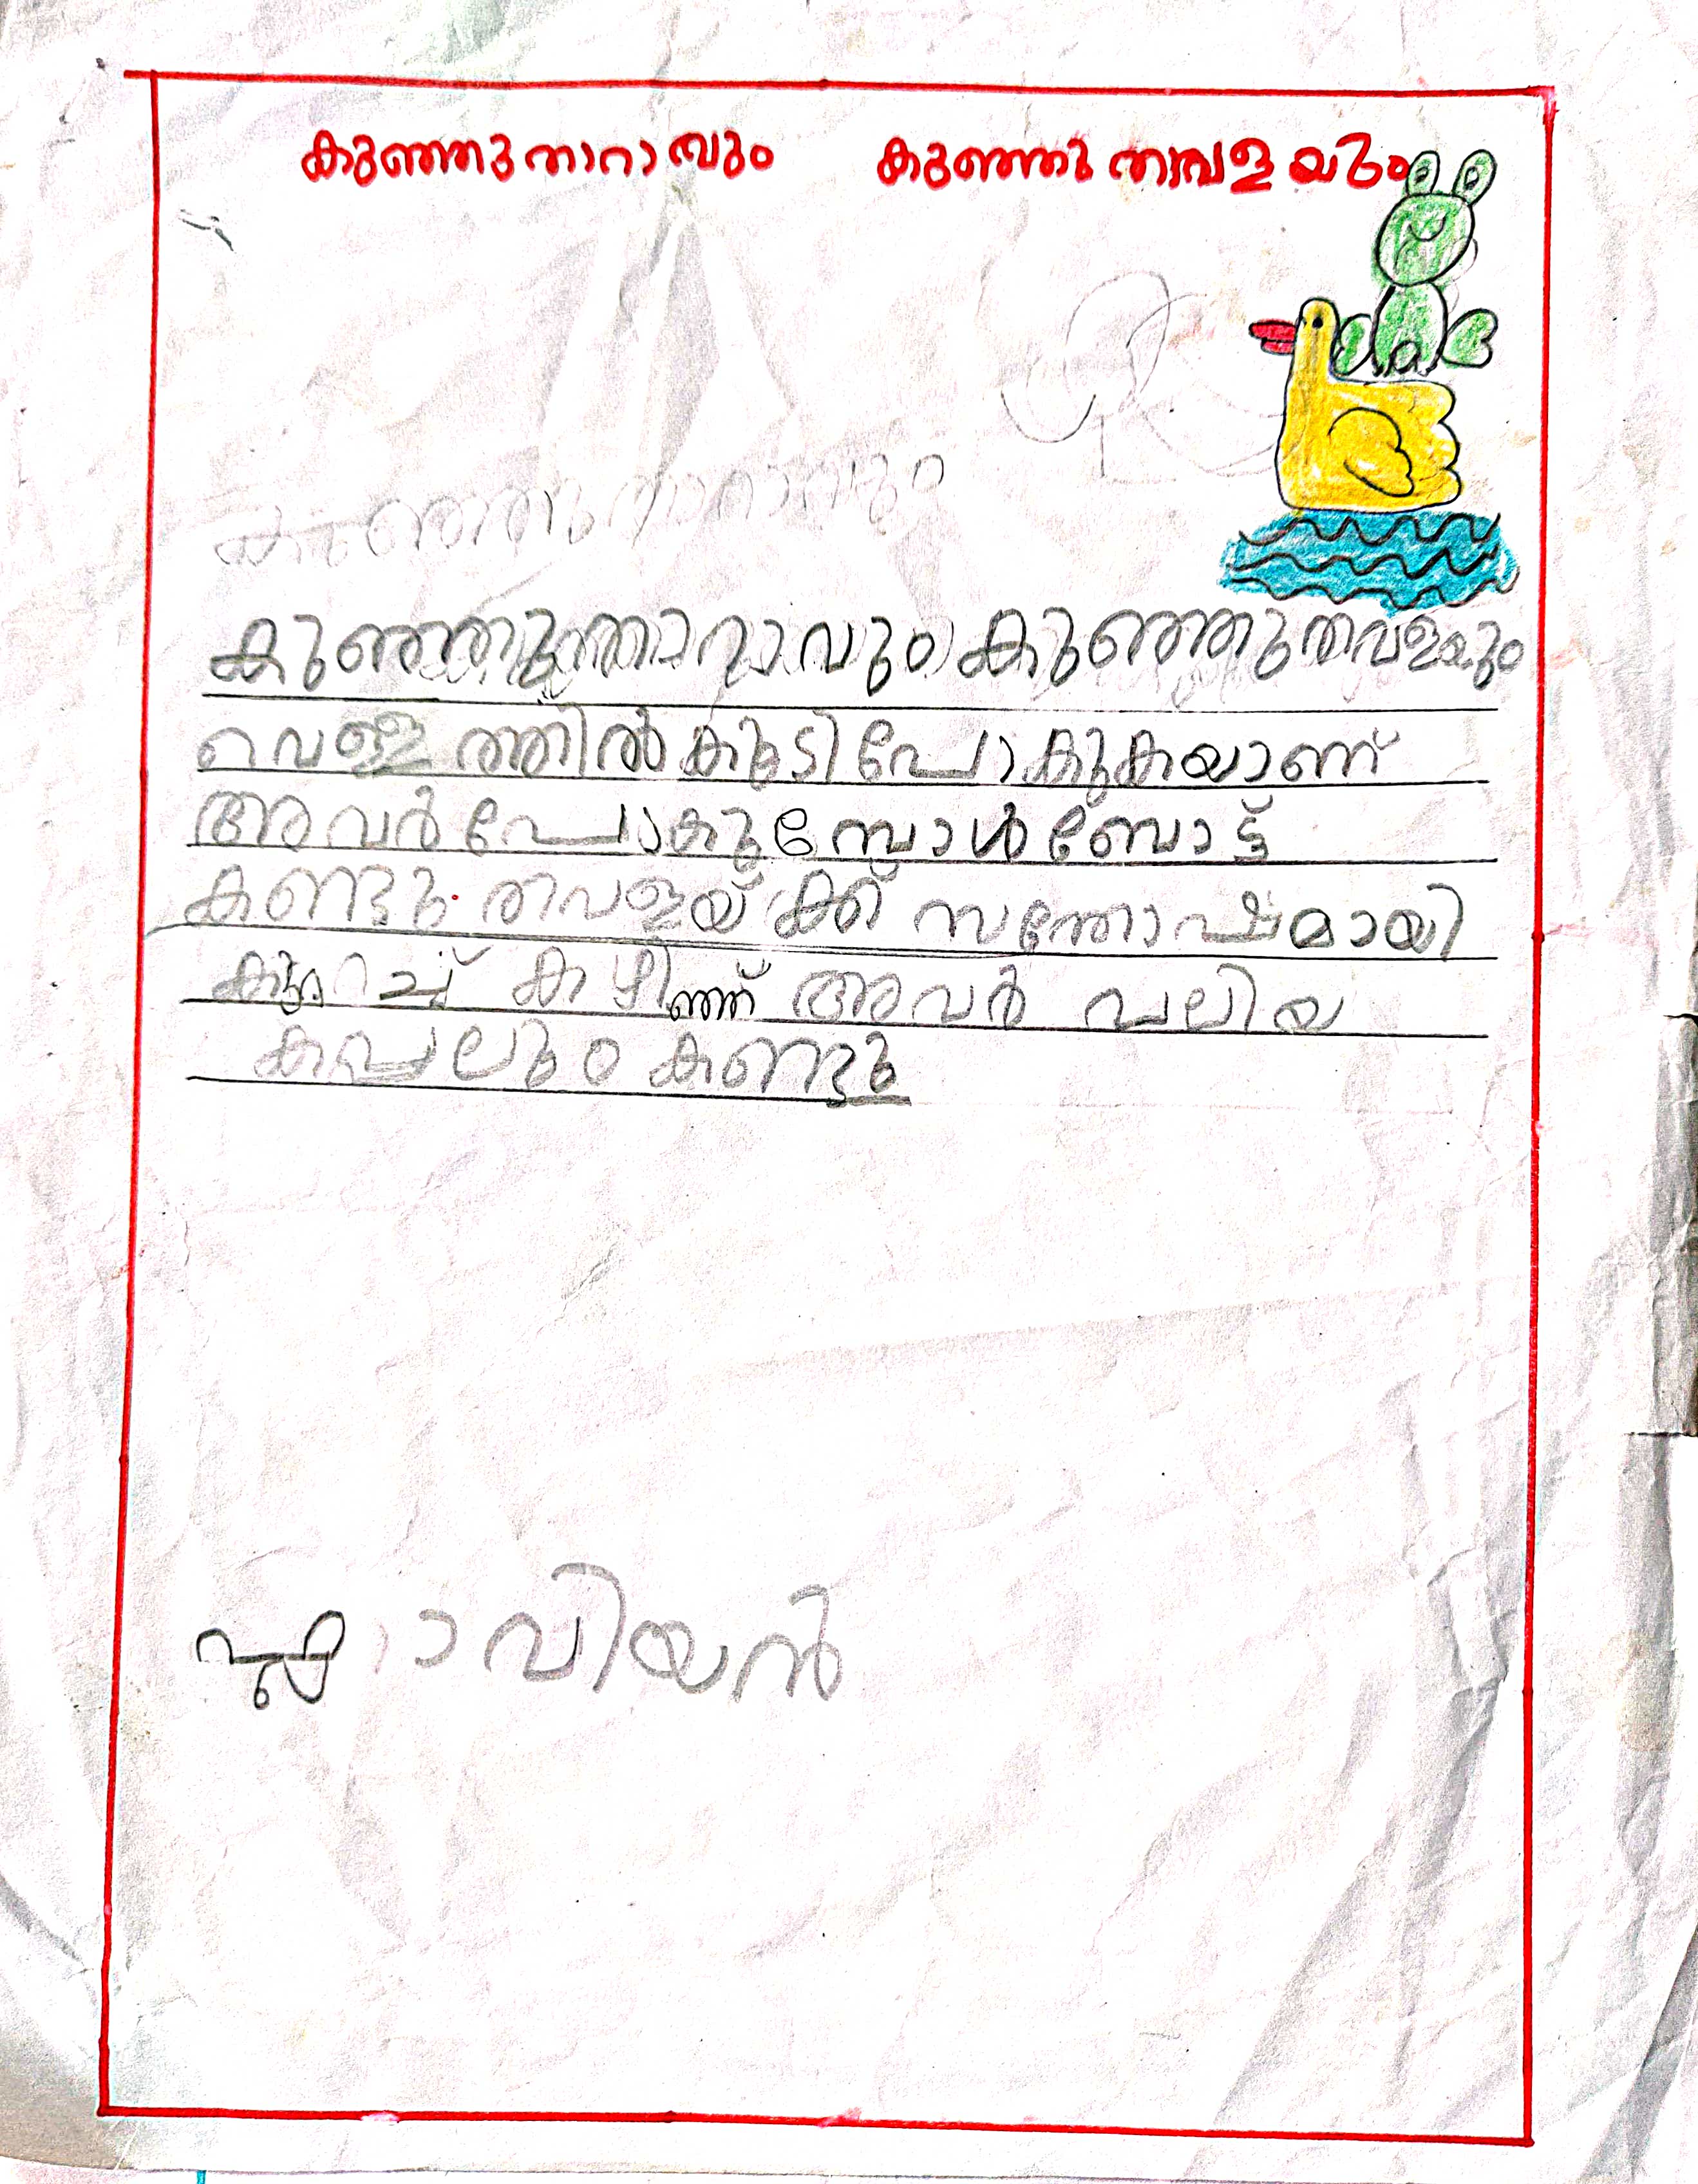 കുഞ്ഞു താറാവും കുഞ്ഞു തവളയും
കുഞ്ഞുതാറാവും
കുഞ്ഞുതാറാവും കുഞ്ഞുതവളയും
വെള്ളത്തിൽ കൂടി പോകുകയാണ്
അവർ പോകുമ്പോൾ ബോട്ട്
കണ്ടു. തവളയ്ക്ക് സന്തോഷമായി
കുറച്ച് കഴിഞ്ഞ് അവർ വലിയ
കപ്പലും കണ്ടു
ഫ്ലാവിയൻ